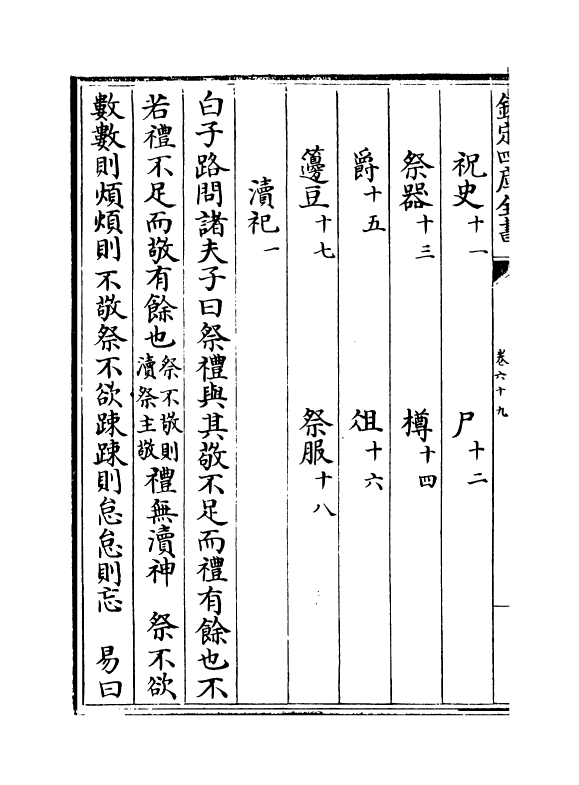 欽定四庫全書
卷六十九
祝史十一　尸十二
祭器十三　樽十四
爵十五　俎十六
籩豆十七　祭服十八
瀆祀一
白子路問諸夫子曰祭禮與其敬不足而禮有餘也不
若禮不足而敬有餘也祭不敬則瀆祭主敬禮無瀆神　祭不欲
數數則煩煩則不敬祭不欲踈踈則怠怠則忘　易曰